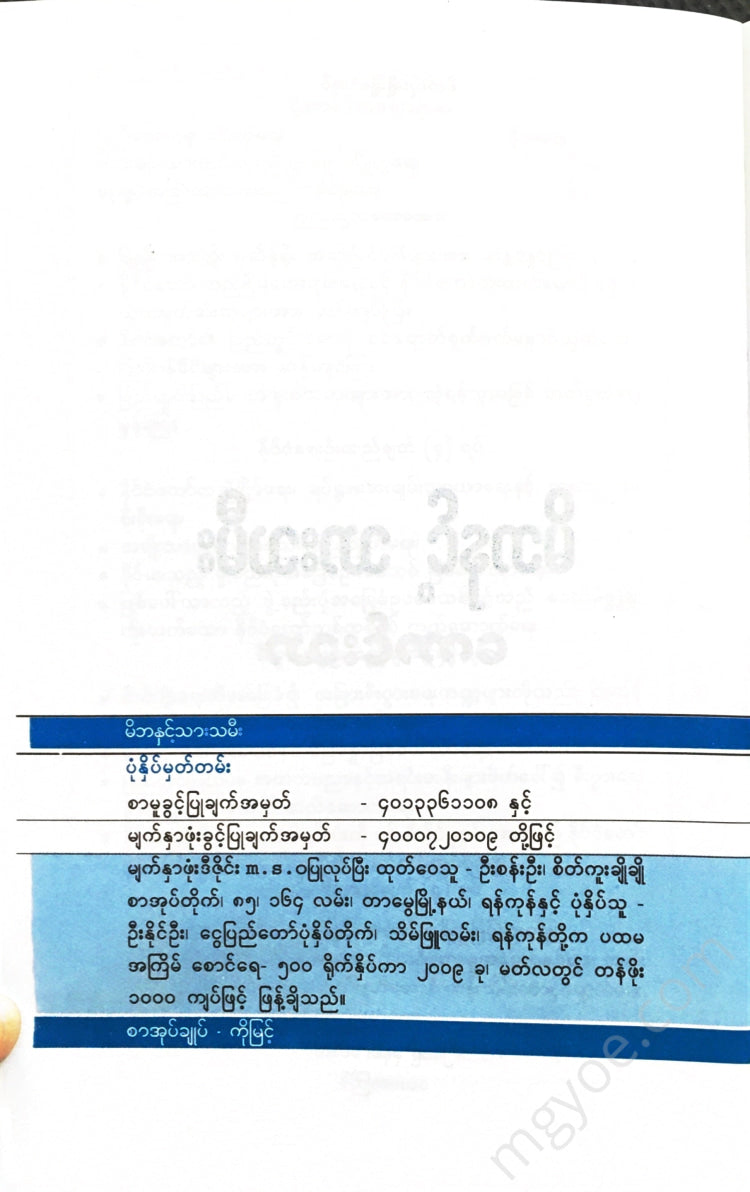 မိဘနှင့်သားသမီး
ပုံနှိပ်မှတ်တမ်း
စာမူခွင့်ပြုချက်အမှတ် - ၄၀၁၃၃၆၁၁၀၈ နှင့်
မျက်နှာဖုံးခွင့်ပြုချက်အမှတ် - ၄၀၀၀၇၂၀၁၀၉ တို့ဖြင့်
မျက်နှာဖုံးဒီဇိုင်း m.s.ဝပြုလုပ်ပြီး ထုတ်ဝေသူ - ဦးစန်းဦး၊ စိတ်ကူးချိုချို
စာအုပ်တိုက်၊ ၈၅၊ ၁၆၄ လမ်း၊ တာမွေမြို့နယ်၊ ရန်ကုန်နှင့် ပုံနှိပ်သူ -
ဦးနိုင်ဦး၊ ငွေပြည်တော်ပုံနှိပ်တိုက်၊ သိမ်ဖြူလမ်း၊ ရန်ကုန်တို့က ပထမ
အကြိမ် စောင်ရေ- ၅၀၀ ရိုက်နှိပ်ကာ ၂၀၀၉ ခု၊ မတ်လတွင် တန်ဖိုး
၁၀၀၀ ကျပ်ဖြင့် ဖြန့်ချိသည်။
စာအုပ်ချုပ် - ကိုမြင့်
mgyoe.com